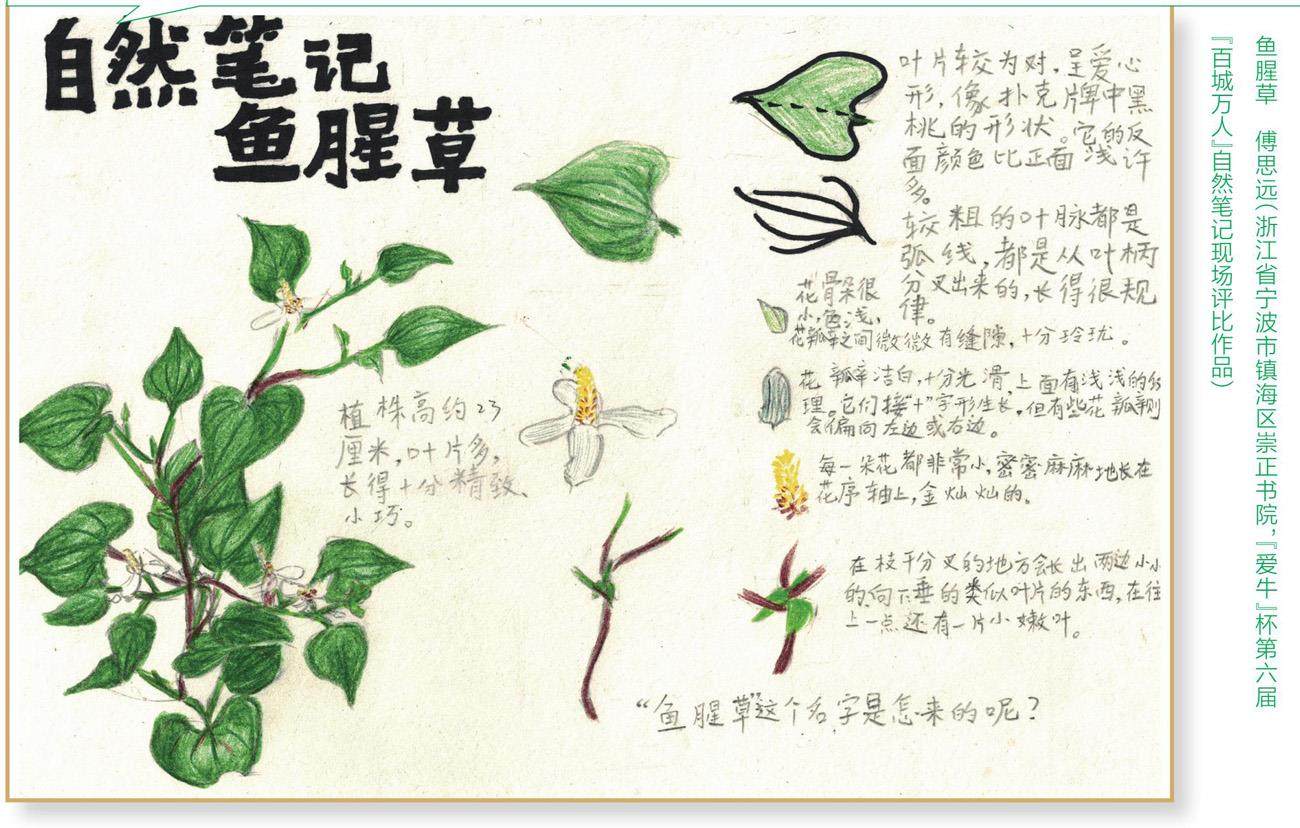 自然笔记
鱼腥草
叶片较为对,呈爱心
形,像扑克牌中黑
桃的形状。它的反
面颜色比正面浅许
多。
较粗的叶脉都是
弧线,都是从叶柄
分叉出来的,长得很规
律。
花骨朵很
小,色浅,
花瓣之间微微有缝隙,十分玲珑。
花瓣洁白,十分光滑,上面有浅浅的纹
理。它们接“十”字形生长,但有些花瓣则
会偏向左边或右边。
植株高约23
厘米,叶片多,
长得十分精致、
小巧。
每一朵花都非常小,密密麻麻地长在
花序轴上,金灿灿的。
在枝干分叉的地方会长出两边小小
的向下垂的类似叶片的东西,在往
上一点还有一片小嫩叶。
“鱼腥草”这个名字是怎来的呢?
鱼腥草 傅思远(浙江省宁波市镇海区崇正书院,『爱牛』杯第六届
『百城万人』自然笔记现场评比作品)